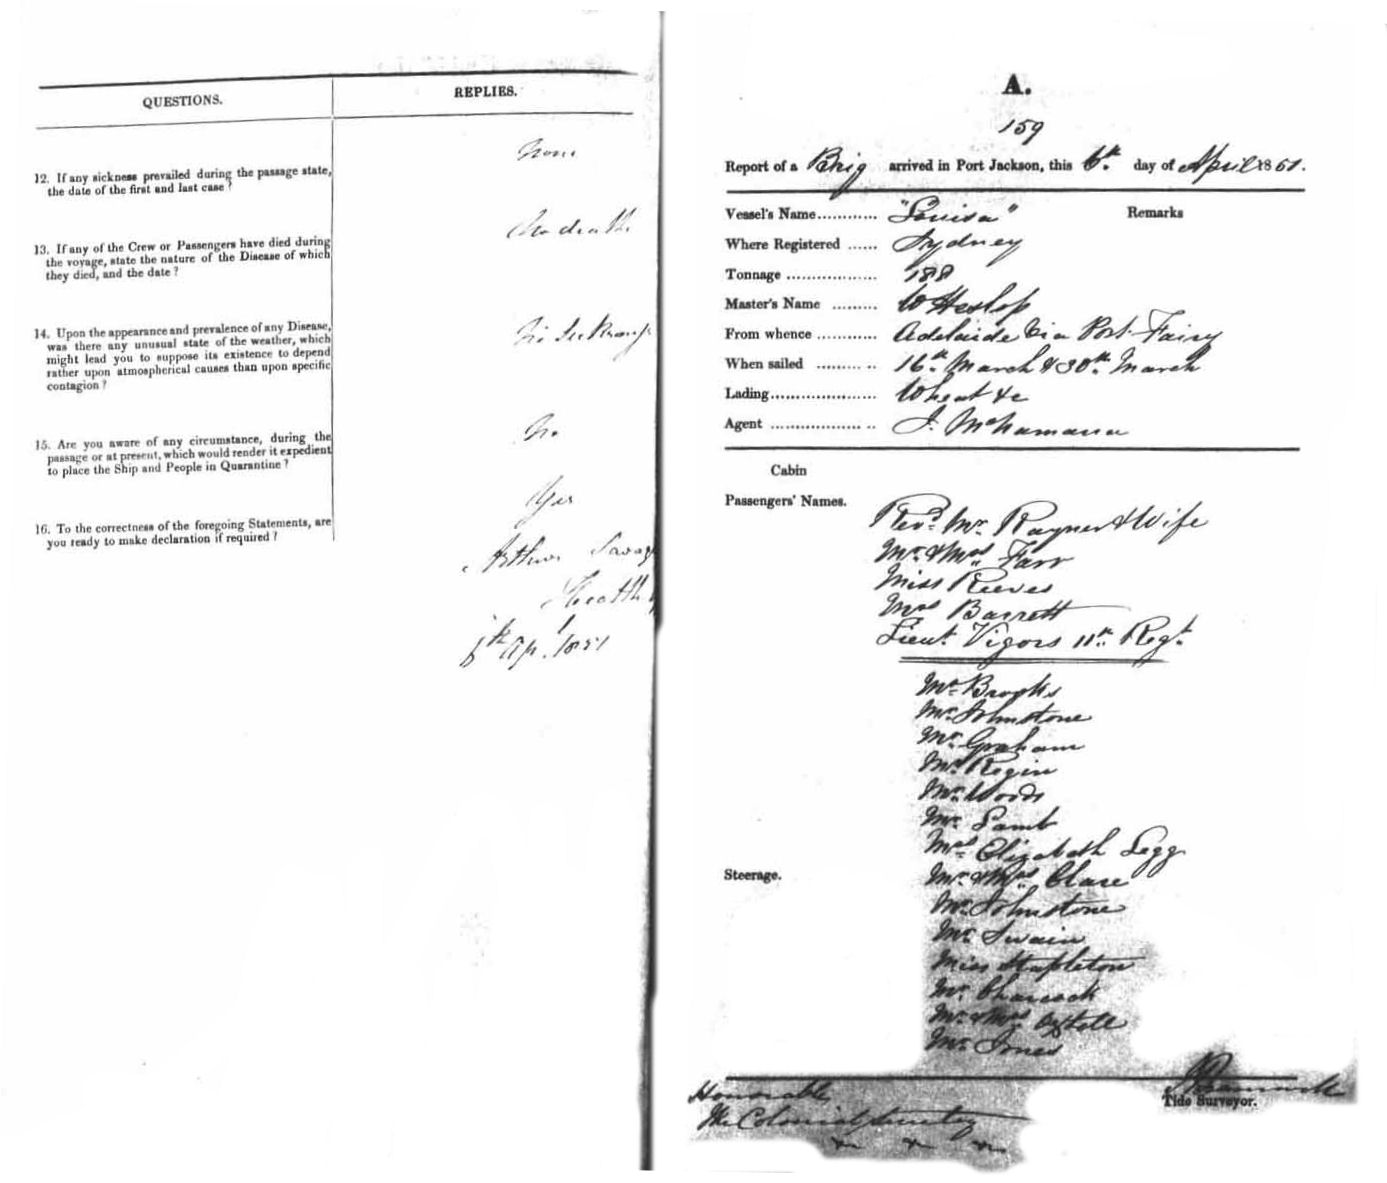 QUESTIONS.
REPLIES.
12. If any sickness prevailed during the passage state,
the date of the first and last case?
None
13. If any of the Crew or Passengers have died during
the voyage, state the nature of the Disease of which
they died, and the date?
No death
14. Upon the appearance and prevalence of any Disease,
was there any unusual state of the weather, which
might lead you to suppose its existence to depend
rather upon atmospherical causes than upon specific
contagion?
15. Are you aware of any circumstance, during the
passage or at present, which would render it expedient
to place the Ship and People in Quarantine?
No
16. To the correctness of the foregoing Statements, are
you ready to make declaration if required?
Yes
Arthur Savage
Health
6th Apl. 1851
A.
159
Report of a Brig arrived in Port Jackson, this 6th. day of April 1851.
Vessel's Name "Louisa"
Remarks
Where Registered Sydney
Tonnage 188
Master's Name W Heslop
From whence Adelaide Via Port Fairy
When sailed 16th. March & 30th. March
Lading Wheat &c
Agent J. McNamara
Cabin
Passengers' Names.
Revd. Mr. Rayner & Wife
Mr. & Mrs Farr
Miss Reeves
Mrs Barrett
Lieut. Vigors 11th. Regt.
Mr. Brooks
Mr. Johnstone
Mr. Graham
Mr. Regin
Mr. Woods
Mr. Lamb
Mrs Elizabeth Legg
Steerage.
Mr. & Mrs Clare
Mr. Johnstone
Mr. Swain
Miss Stapleton
Mr. Charcock
Mr. & Mrs Axtell
Mr. Jones
Honorable
The Colonial Secretary
Tide Surveyor.